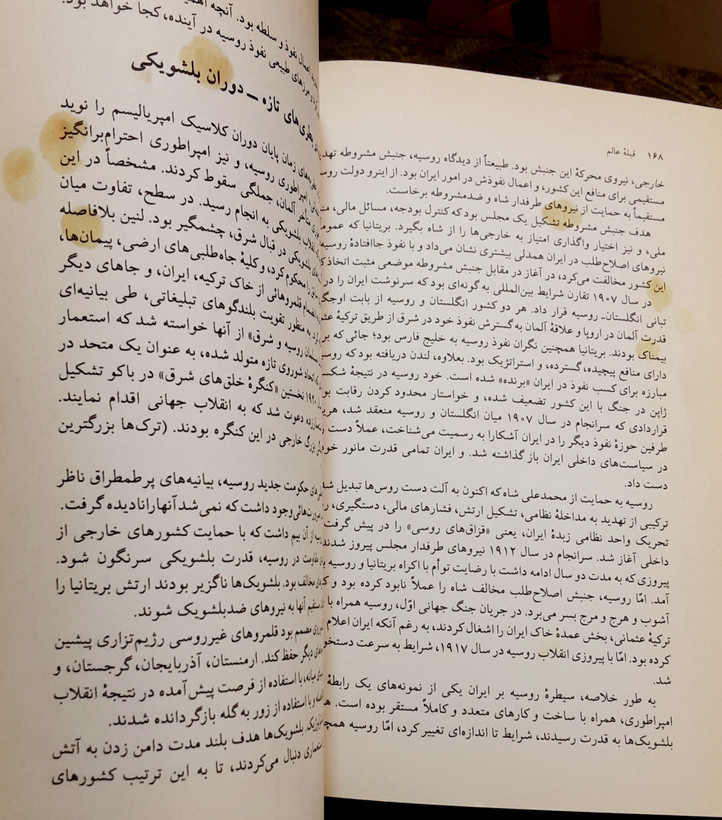 ۱۶۸ قبلهٔ عالم
خارجی، نیروی محرکهٔ این جنبش بود. طبیعتاً از دیدگاه روسیه، جنبش مشروطه
مستقیمی برای منافع این کشور، و اعمال نفوذش در امور ایران بود. از اینرو دولت
مستقیماً به حمایت از نیروهای طرفدار شاه و ضدمشروطه برخاست.
هدف جنبش مشروطه تشکیل یک مجلس بود که کنترل بودجه، مسائل مالی،
ملی، و نیز اختیار واگذاری امتیاز به خارجی‌ها را از شاه بگیرد. بریتانیا که
نیروهای اصلاح‌طلب در ایران همدلی بیشتری نشان می‌داد و با نفوذ جاافتادهٔ
این کشور مخالفت می‌کرد، در آغاز در مقابل جنبش مشروطه موضعی مثبت اتخاذ
در سال ۱۹۰۷ تقارن شرایط بین‌المللی به گونه‌ای بود که سرنوشت ایران را در
تبانی انگلستان-روسیه قرار داد. هر دو کشور انگلستان و روسیه از بابت
قدرت آلمان در اروپا و علاقهٔ آلمان به گسترش نفوذ خود در شرق از طریق ترکیهٔ
بیمناک بودند. بریتانیا همچنین نگران نفوذ روسیه به خلیج فارس بود؛ جائی که
دارای منافع پیچیده، گسترده، و استراتژیک بود. بعلاوه، لندن دریافته بود که
مبارزه برای کسب نفوذ در ایران «برنده» شده است. خود روسیه در نتیجهٔ
ژاپن در جنگ با این کشور تضعیف شده، و خواستار محدود کردن رقابت
قراردادی که سرانجام در سال ۱۹۰۷ میان انگلستان و روسیه منعقد شد،
طرفین حوزهٔ نفوذ دیگر را در ایران آشکارا به رسمیت می‌شناخت، عملاً دست
در سیاست‌های داخلی ایران باز گذاشته شد. و ایران تمامی قدرت مانور
دست داد.
روسیه به حمایت از محمدعلی شاه که اکنون به آلت دست روس‌ها تبدیل
ترکیبی از تهدید به مداخلهٔ نظامی، تشکیل ارتش، فشارهای مالی، دستگیری،
تحریک واحد نظامی زبدهٔ ایران، یعنی «قزاق‌های روسی» را در پیش گرفت
داخلی آغاز شد. سرانجام در سال ۱۹۱۲ نیروهای طرفدار مجلس پیروز شدند
پیروزی که به مدت دو سال ادامه داشت با رضایت توأم با اکراه بریتانیا و روسیه
آمد. امّا روسیه، جنبش اصلاح‌طلب مخالف شاه را عملاً نابود کرده بود و
آشوب و هرج و مرج بسر می‌برد. در جریان جنگ جهانی اوّل، روسیه همراه با
ترکیهٔ عثمانی، بخش عمدهٔ خاک ایران را اشغال کردند، به رغم آنکه ایران اعلام
کرده بود. امّا با پیروزی انقلاب روسیه در سال ۱۹۱۷، شرایط به سرعت
شد.
به طور خلاصه، سیطرهٔ روسیه بر ایران یکی از نمونه‌های یک رابطهٔ
امپراطوری، همراه با ساخت و کارهای متعدد و کاملاً مستقر بوده است.
بلشویک‌ها به قدرت رسیدند، شرایط تا اندازه‌ای تغییر کرد، امّا روسیه
اعمال نفوذ و سلطه بود. آنچه
مرزهای طبیعی نفوذ روسیه در آینده، کجا خواهد بود.
های تازه ــ دوران بلشویکی
زمان پایان دوران کلاسیک امپریالیسم را نوید
امپراطوری روسیه، و نیز امپراطوری احترام‌برانگیز
آلمان، جملگی سقوط کردند. مشخصاً در این
بلشویکی به انجام رسید. در سطح، تفاوت میان
بلشویکی در قبال شرق، چشمگیر بود. لنین بلافاصله
محکوم کرد، و کلیهٔ جاه‌طلبی‌های ارضی، پیمان‌ها،
قلمروهائی از خاک ترکیه، ایران، و جاهای دیگر
به منظور تقویت بلندگوهای تبلیغاتی، طی بیانیه‌ای
روسیه و شرق» از آنها خواسته شد که استعمار
اتحاد شوروی تازه متولد شده، به عنوان یک متحد در
نخستین «کنگرهٔ خلق‌های شرق» در باکو تشکیل
دعوت شد که به انقلاب جهانی اقدام نمایند.
خارجی در این کنگره بودند. (ترک‌ها بزرگترین
حکومت جدید روسیه، بیانیه‌های پرطمطراق ناظر
وجود داشت که نمی‌شد آنها را نادیده گرفت.
از آن بیم داشت که با حمایت کشورهای خارجی از
در روسیه، قدرت بلشویکی سرنگون شود.
مخالف بود. بلشویک‌ها ناگزیر بودند ارتش بریتانیا را
آنها به نیروهای ضدبلشویک شوند.
مصمم بود قلمروهای غیرروسی رژیم‌تزاری پیشین
دیگر حفظ کند. ارمنستان، آذربایجان، گرجستان، و
با استفاده از فرصت پیش‌آمده در نتیجهٔ انقلاب
و با استفاده از زور به گله بازگردانده شدند.
بلشویک‌ها هدف بلند مدت دامن زدن به آتش
دنبال می‌کردند، تا به این ترتیب کشورهای